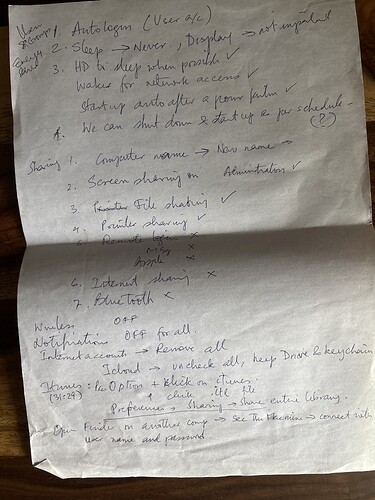 Users & Groups 1. Autologin (User a/c)
Energy saver 2. Sleep → Never, Display → not important
3. HD to sleep when possible ✓
Wakes for network access ✓
Startup auto after a power failure ✓
4. We can shut down & start up & per schedule - (?)
Sharing 1. Computer name → New name →
2. Screen sharing on Administrators ✓
3. File sharing ✓
4. Printer sharing ✓
5. Remote login ×
Mgt ×
Apple ×
6. Internet sharing ×
7. Bluetooth ×
Wireless OFF
Notifications OFF for all.
Internet accounts → Remove all
Icloud → uncheck all, keep Drive & keychain
Itunes: Option + klick on itunes.
(31:29) ↑ click file
Preferences → Sharing → Share entire library.
Open Finder on another comp → see the machine → connect with
user name and password